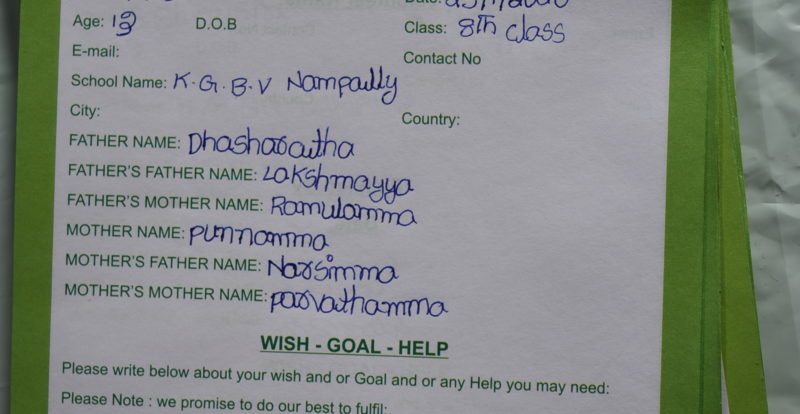 Age: 13 D.O.B
Class: 8th class
E-mail:
Contact No
School Name: K.G.B.V Nampally
City:
Country:
FATHER NAME: Dhasharatha
FATHER'S FATHER NAME: Lakshmayya
FATHER'S MOTHER NAME: Ramulamma
MOTHER NAME: punnamma
MOTHER'S FATHER NAME: Narsimma
MOTHER'S MOTHER NAME: parvathamma
WISH - GOAL - HELP
Please write below about your wish and or Goal and or any Help you may need:
Please Note : we promise to do our best to fulfil: